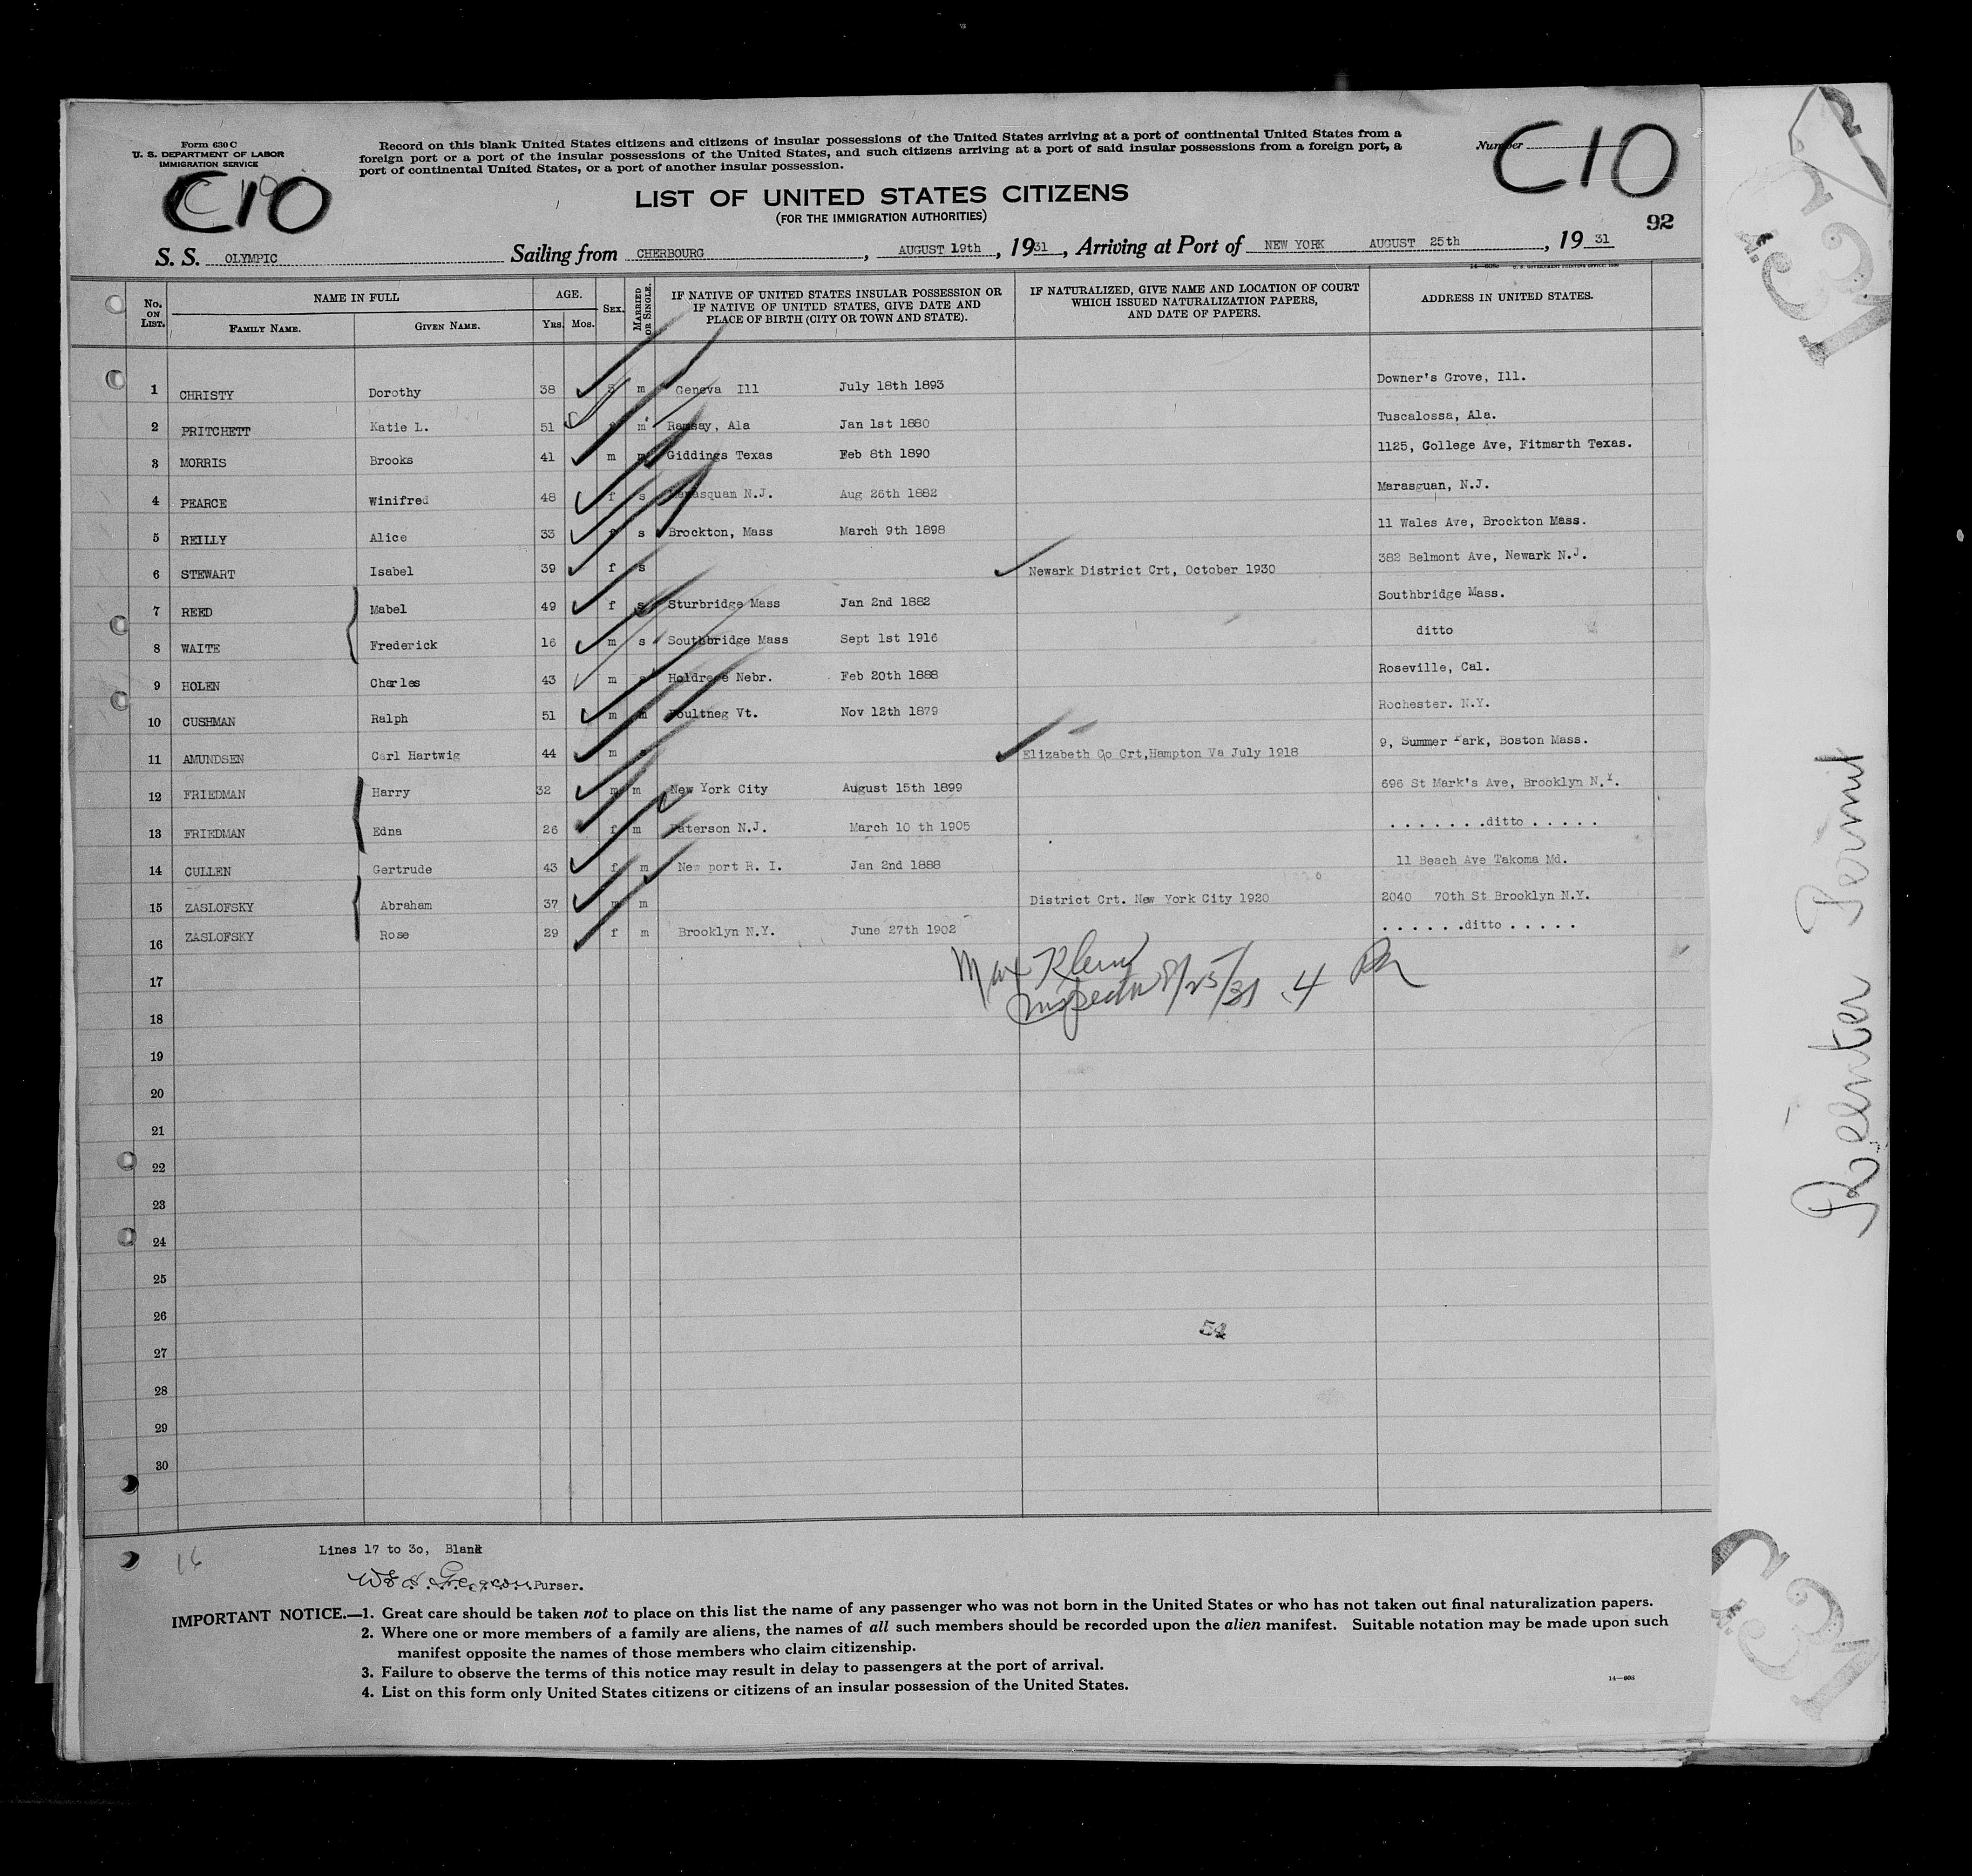 Form 630 C
U. S. DEPARTMENT OF LABOR
IMMIGRATION SERVICE
C10
Record on this blank United States citizens and citizens of insular possessions of the United States arriving at a port of continental United States from a
foreign port or a port of the insular possessions of the United States, and such citizens arriving at a port of said insular possessions from a foreign port, a
port of continental United States, or a port of another insular possession.
Number
C10
LIST OF UNITED STATES CITIZENS
(FOR THE IMMIGRATION AUTHORITIES)
92
S. S. OLYMPIC Sailing from CHERBOURG, AUGUST 19th, 1931, Arriving at Port of NEW YORK AUGUST 25th, 19 31
No. ON LIST. NAME IN FULL FAMILY NAME. GIVEN NAME. AGE. YRS. MOS. SEX. MARRIED OR SINGLE. IF NATIVE OF UNITED STATES INSULAR POSSESSION OR IF NATIVE OF UNITED STATES, GIVE DATE AND PLACE OF BIRTH (CITY OR TOWN AND STATE). IF NATURALIZED, GIVE NAME AND LOCATION OF COURT WHICH ISSUED NATURALIZATION PAPERS, AND DATE OF PAPERS. ADDRESS IN UNITED STATES.
1 CHRISTY Dorothy 38 m Geneva Ill July 18th 1893 Downer's Grove, Ill.
2 PRITCHETT Katie L. 51 m Ramsay, Ala Jan 1st 1880 Tuscalossa, Ala.
3 MORRIS Brooks 41 m m Giddings Texas Feb 8th 1890 1125, College Ave, Fitmarth Texas.
4 PEARCE Winifred 48 f s Marasquan N.J. Aug 26th 1882 Marasguan, N.J.
5 REILLY Alice 33 f s Brockton, Mass March 9th 1898 11 Wales Ave, Brockton Mass.
6 STEWART Isabel 39 f s Newark District Crt, October 1930 382 Belmont Ave, Newark N.J.
7 REED Mabel 49 f s Sturbridge Mass Jan 2nd 1882 Southbridge Mass.
8 WAITE Frederick 16 m s Southbridge Mass Sept 1st 1916 ditto
9 HOLEN Charles 43 m s Holdrege Nebr. Feb 20th 1888 Roseville, Cal.
10 CUSHMAN Ralph 51 m m Poultneg Vt. Nov 12th 1879 Rochester. N.Y.
11 AMUNDSEN Carl Hartwig 44 m s Elizabeth Co Crt,Hampton Va July 1918 9, Summer Park, Boston Mass.
12 FRIEDMAN Harry 32 m m New York City August 15th 1899 696 St Mark's Ave, Brooklyn N.Y.
13 FRIEDMAN Edna 26 f m Paterson N.J. March 10 th 1905 . . . . . . .ditto . . . . .
14 CULLEN Gertrude 43 f m New port R. I. Jan 2nd 1888 11 Beach Ave Takoma Md.
15 ZASLOFSKY Abraham 37 m m District Crt. New York City 1920 2040 70th St Brooklyn N.Y.
16 ZASLOFSKY Rose 29 f m Brooklyn N.Y. June 27th 1902 . . . . . .ditto . . . . .
Max Klein
Inspector 8/25/31 4
17
18
19
20
21
22
23
24
25
26
54
27
28
29
30
16
Lines 17 to 30, Blank
Purser.
IMPORTANT NOTICE.—1. Great care should be taken not to place on this list the name of any passenger who was not born in the United States or who has not taken out final naturalization papers.
2. Where one or more members of a family are aliens, the names of all such members should be recorded upon the alien manifest. Suitable notation may be made upon such
manifest opposite the names of those members who claim citizenship.
3. Failure to observe the terms of this notice may result in delay to passengers at the port of arrival.
4. List on this form only United States citizens or citizens of an insular possession of the United States.
Reenter Permit